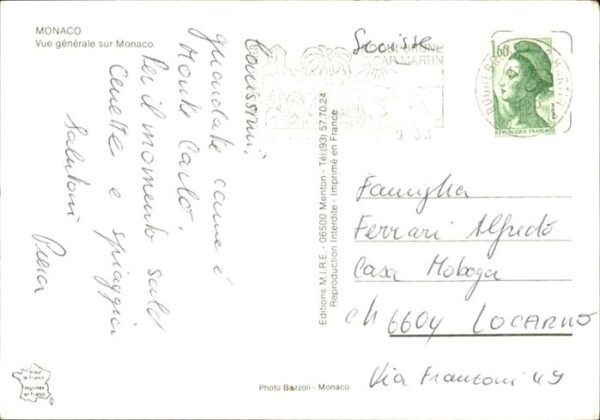 MONACO
Vue générale sur Monaco.
Carissimi,
guardate come è
Monte Carlo.
Per il momento solo
Cenette e spiaggia
Salutoni
Svizzera
CAP MARTIN
1,60
REPUBLIQUE FRANÇAISE
Editions M.I.R.E. - 06500 Menton - Tél (93) 57.70.24
Reproduction Interdite - Imprimé en France
Famiglia
Ferrari Alfredo
Casa Moboga
CH 6604 LOCARNO
Via Franzoni 49
Photo Bazzoli - Monaco